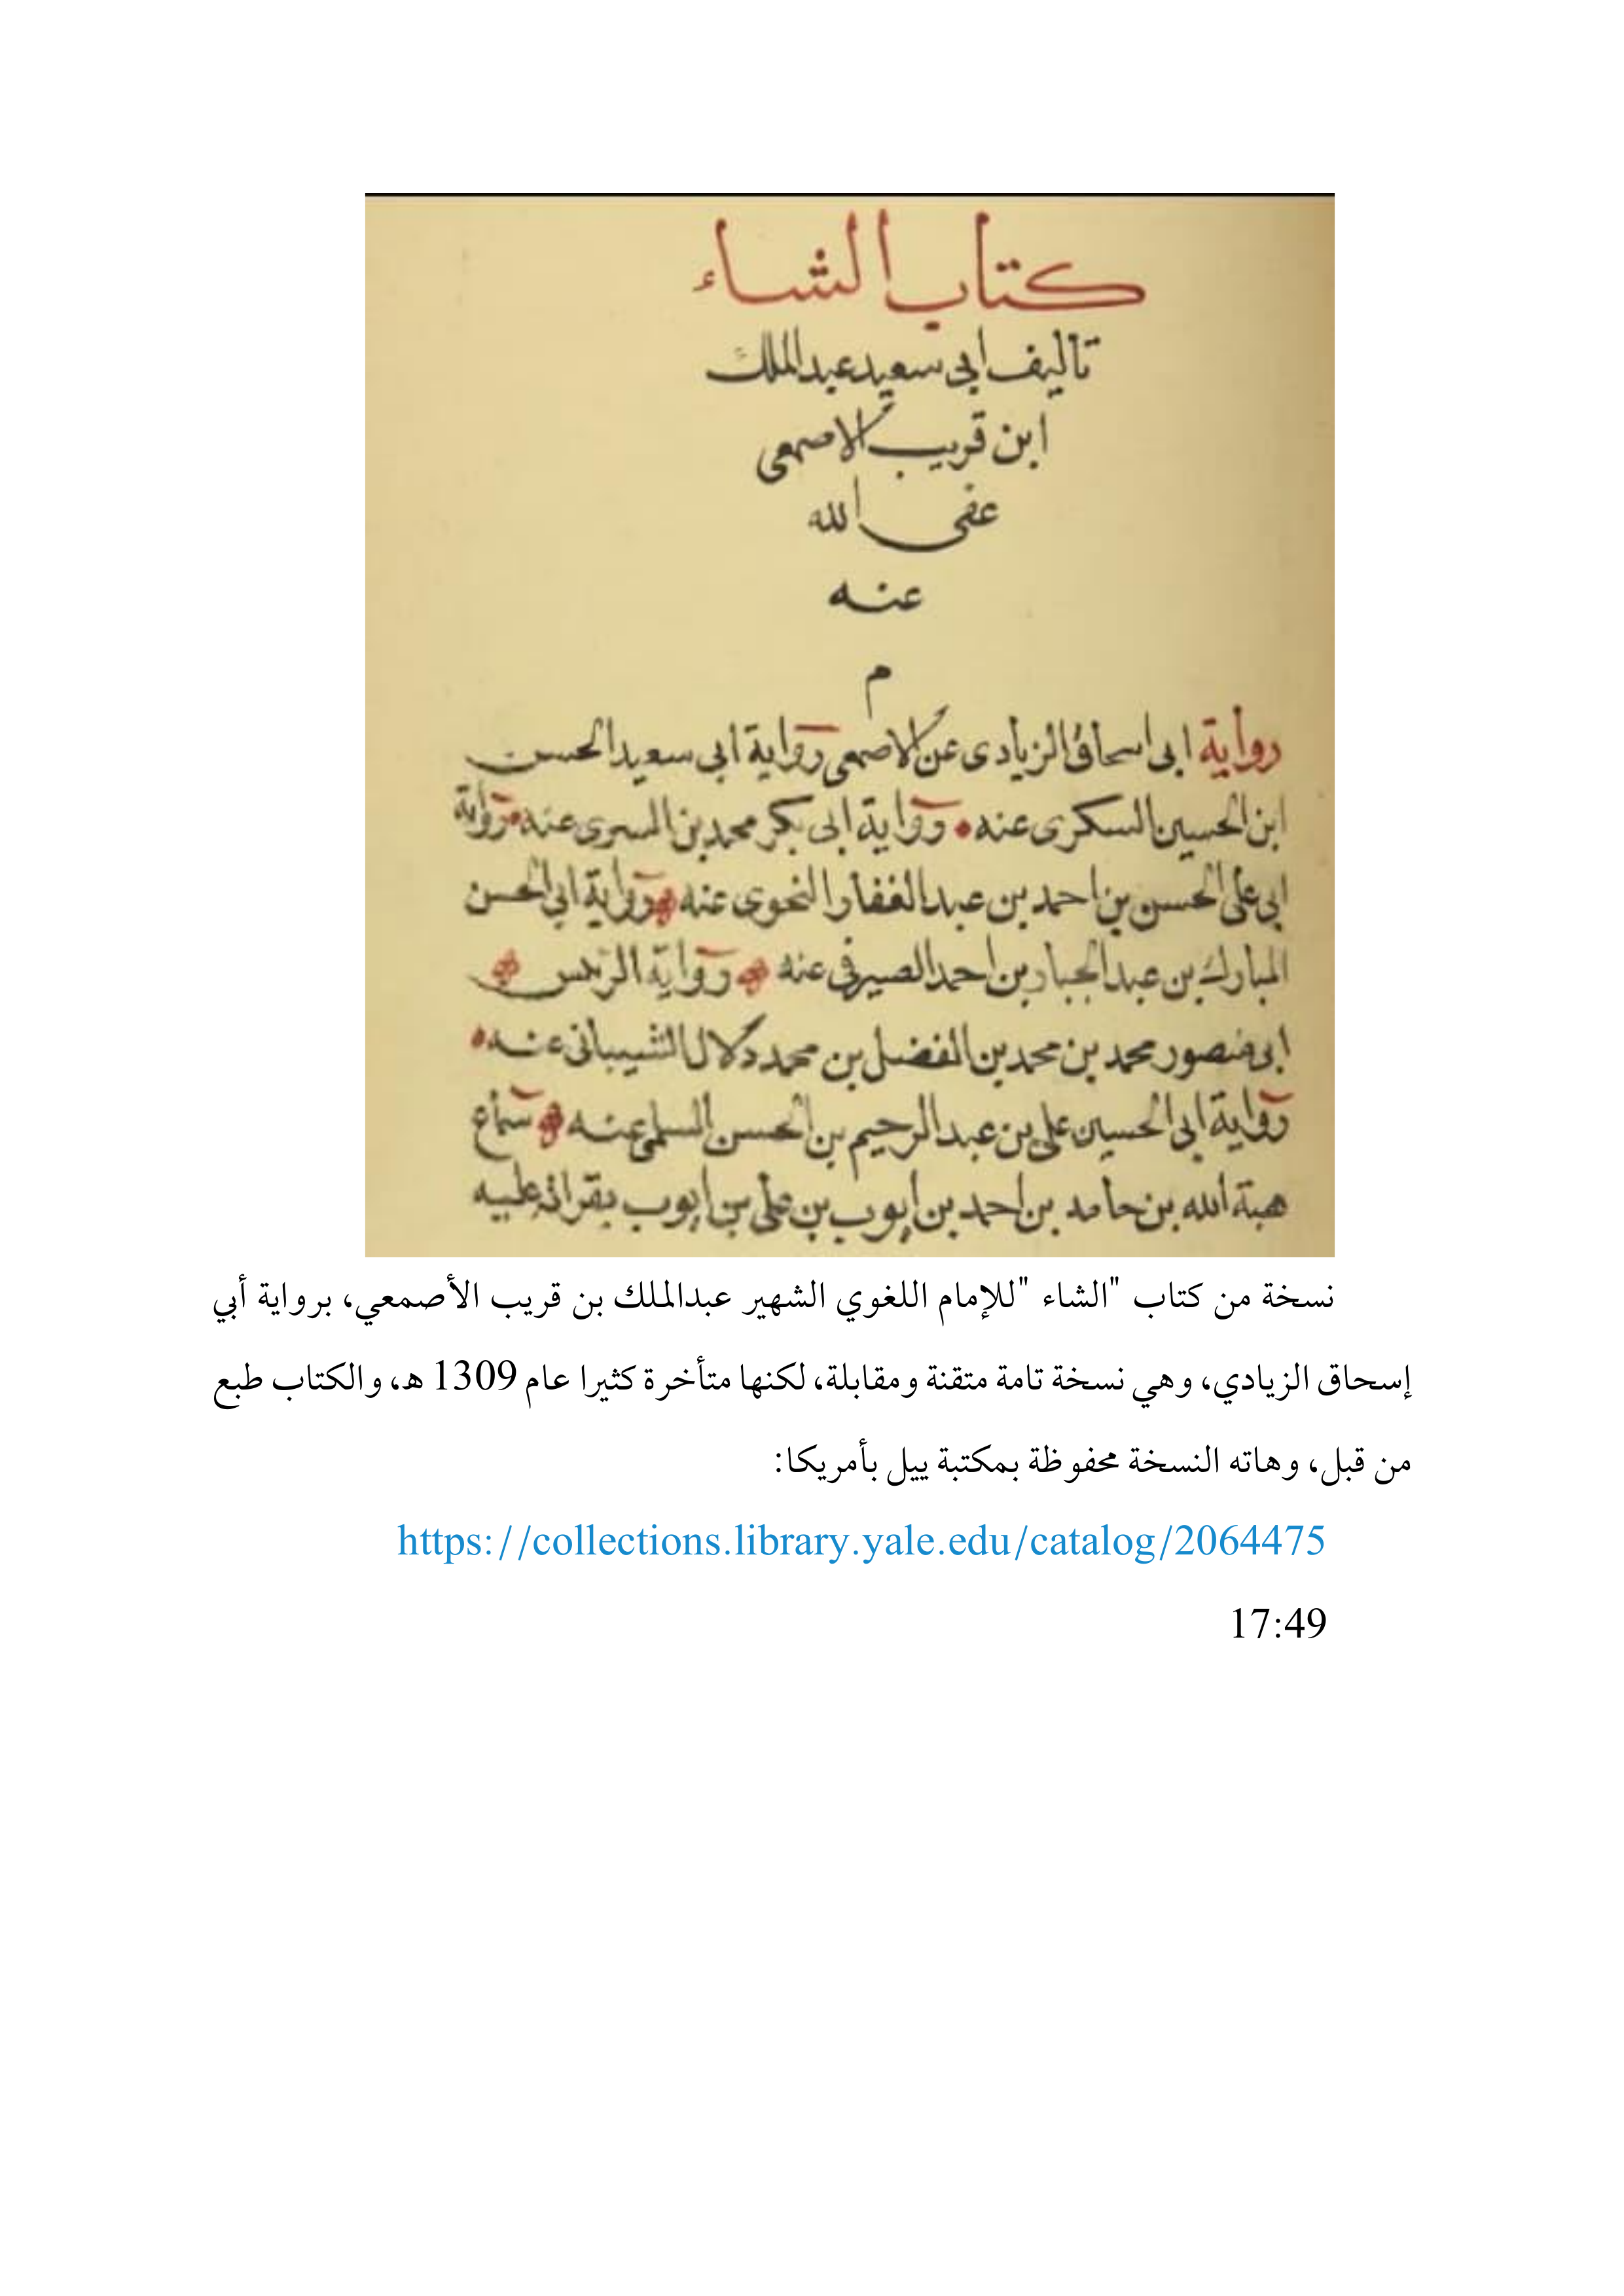 كتاب الشاء
تاليف ابى سعيد عبد الملك
ابن قريب الاصمعى
عفى الله
عنه
م
رواية ابى اسحاق الزيادى عن الاصمعى رواية ابى سعيد الحسن
ابن الحسين السكرى عنه ورواية ابى بكر محمد بن السرى عنه ورواية
ابى على الحسن بن احمد بن عبد الغفار النحوى عنه ورواية ابى الحسن
المبارك بن عبد الجبار بن احمد الصيرفى عنه ورواية الرئيس
ابى منصور محمد بن محمد بن الفضل بن محمد دلال الشيبانى عنه
رواية ابى الحسين على بن عبد الرحيم بن الحسن السلمى عنه سماع
هبة الله بن حامد بن احمد بن ايوب بن على بن ايوب بقراته عليه
نسخة من كتاب "الشاء "للإمام اللغوي الشهير عبدالملك بن قريب الأصمعي، برواية أبي
إسحاق الزيادي، وهي نسخة تامة متقنة ومقابلة، لكنها متأخرة كثيرا عام 1309 هـ، والكتاب طبع
من قبل، وهاته النسخة محفوظة بمكتبة ييل بأمريكا:
https://collections.library.yale.edu/catalog/2064475
17:49